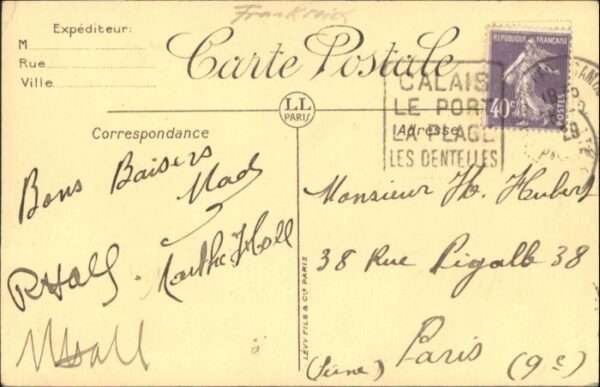 Frankreich
Expéditeur:
M
Rue
Ville
Carte Postale
RÉPUBLIQUE FRANÇAISE
40c
POSTES
CALAIS
LE PORT
LA PLAGE
LES DENTELLES
LL
PARIS
Correspondance
Adresse
Bons Baisers
Mad
R Hall
Marthe Holl
Monsieur Th. Hubert
38 Rue Pigalle 38
Paris (9e)
(Seine)
LÉVY FILS & Cie PARIS